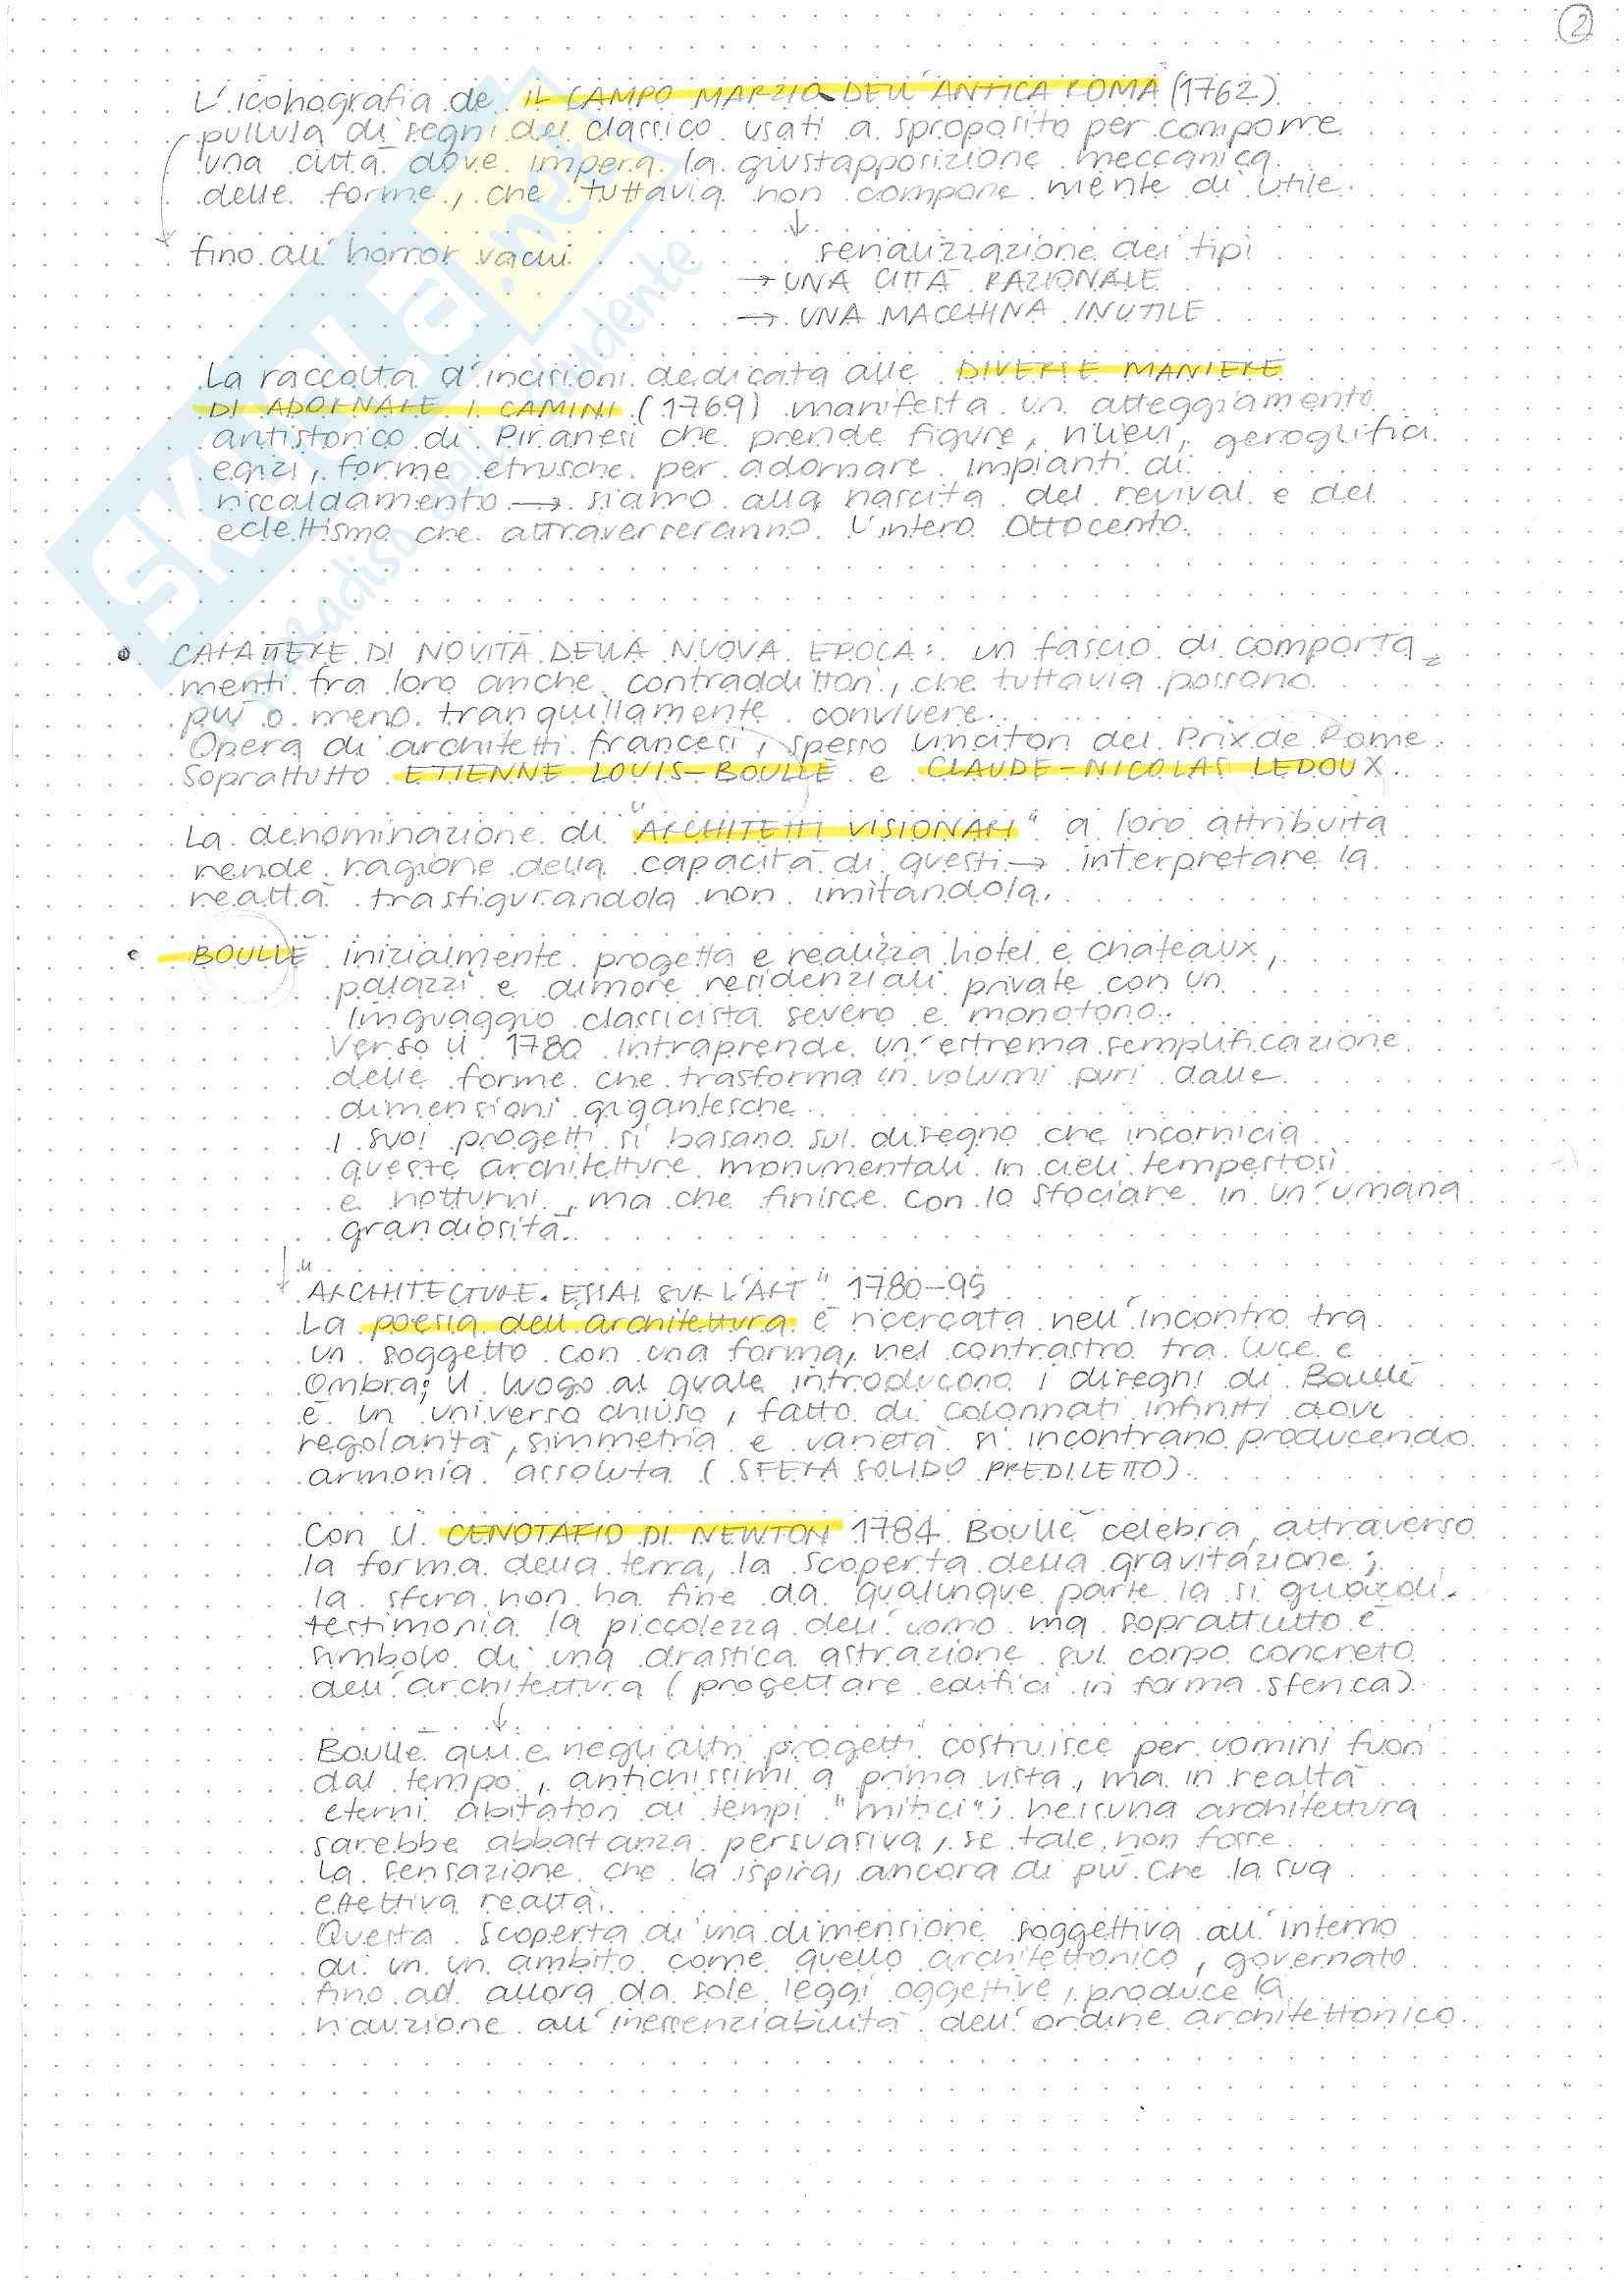 2
L'iconografia de "IL CAMPO MARZIO DELL'ANTICA ROMA" (1762)
pullula di segni del classico usati a sproposito per comporre
una città dove impera la giustapposizione meccanica
delle forme, che tuttavia non compone niente di utile.
↓
fino all'horror vacui
serializzazione dei tipi
→ UNA CITTÀ RAZIONALE
→ UNA MACCHINA INUTILE
La raccolta d'incisioni dedicata alle DIVERSE MANIERE
DI ADORNARE I CAMINI (1769) manifesta un atteggiamento
antistorico di Piranesi che prende figure, rilievi, geroglifici
egizi, forme etrusche per adornare impianti di
riscaldamento → siamo alla nascita del revival e del
eclettismo che attraverseranno l'intero Ottocento.
• CARATTERE DI NOVITÀ DELLA NUOVA EPOCA: un fascio di comporta=
menti fra loro anche contraddittori, che tuttavia possono
più o meno tranquillamente convivere.
Opera di architetti francesi, spesso vincitori del Prix de Rome.
Soprattutto ETIENNE LOUIS-BOULLÈ e CLAUDE-NICOLAS LEDOUX.
La denominazione di "ARCHITETTI VISIONARI" a loro attribuita
rende ragione della capacità di questi → interpretare la
realtà trasfigurandola non imitandola.
• BOULLÈ inizialmente progetta e realizza hotel e chateaux,
palazzi e dimore residenziali private con un
linguaggio classicista severo e monotono.
Verso il 1780 intraprende un'estrema semplificazione
delle forme che trasforma in volumi puri dalle
dimensioni gigantesche.
I suoi progetti si basano sul disegno che incornicia
queste architetture monumentali in cieli tempestosi
e notturni, ma che finisce con lo sfociare in un'umana
grandiosità.
↓
"ARCHITECTURE. ESSAI SUR L'ART" 1780-95
La poesia dell'architettura è ricercata nell'incontro tra
un soggetto con una forma, nel contrastro tra luce e
ombra; il luogo al quale introducono i disegni di Boullè
è un universo chiuso, fatto di colonnati infiniti dove
regolarità, simmetria e varietà si incontrano producendo
armonia assoluta (SFERA SOLIDO PREDILETTO).
Con il CENOTAFIO DI NEWTON 1784 Boullè celebra, attraverso
la forma della terra, la scoperta della gravitazione;
la sfera non ha fine da qualunque parte la si guardi.
testimonia la piccolezza dell'uomo ma soprattutto è
simbolo di una drastica astrazione sul corpo concreto
dell'architettura (progettare edifici in forma sferica)
↓
Boullè qui e negli altri progetti costruisce per uomini fuori
dal tempo, antichissimi a prima vista, ma in realtà
eterni abitatori di tempi "mitici"; nessuna architettura
sarebbe abbastanza persuasiva, se tale non fosse
la sensazione che la ispira, ancora di più che la sua
effettiva realtà.
Questa scoperta di una dimensione soggettiva all'interno
di un un ambito come quello architettonico, governato
fino ad allora da sole leggi oggettive, produce la
riduzione all'inessenziabilità dell'ordine architettonico.